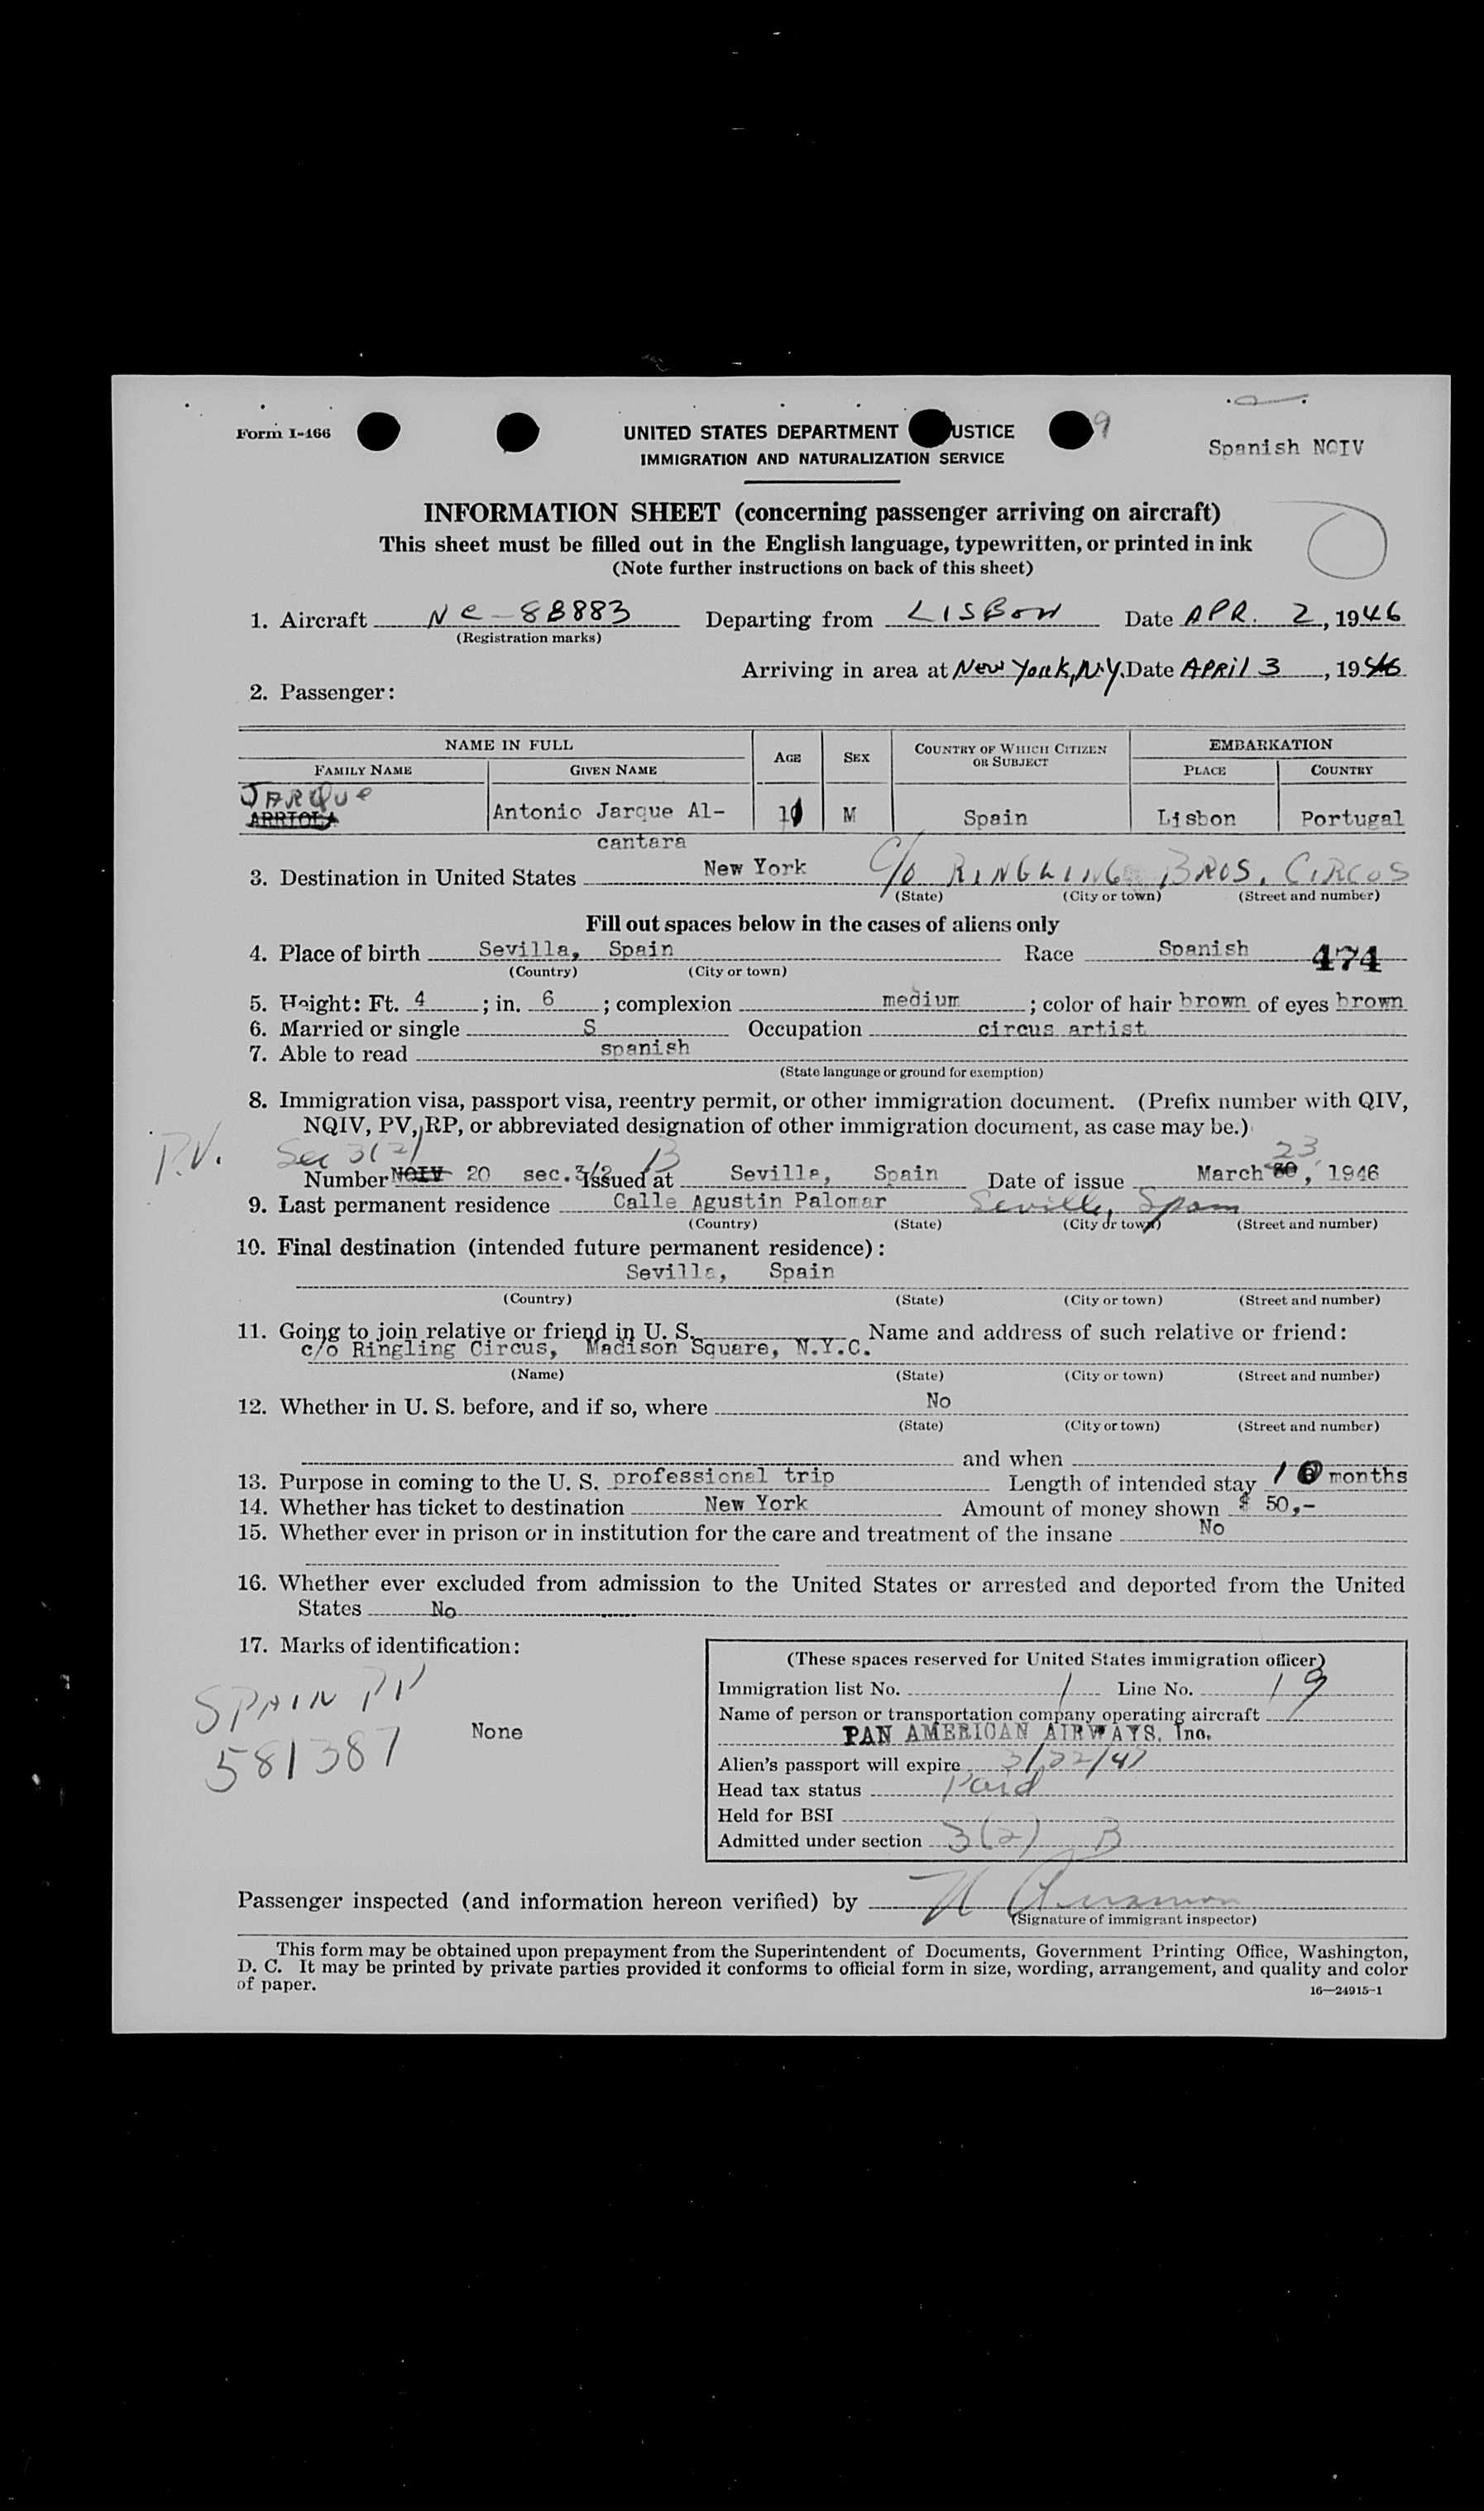 Form I-466
UNITED STATES DEPARTMENT USTICE 9
IMMIGRATION AND NATURALIZATION SERVICE
Spanish NQIV
INFORMATION SHEET (concerning passenger arriving on aircraft)
This sheet must be filled out in the English language, typewritten, or printed in ink
(Note further instructions on back of this sheet)
1. Aircraft NC-88883 Departing from LISBON Date APR. 2, 1946
(Registration marks)
Arriving in area at New York, N.Y. Date APRil 3, 1946
2. Passenger:
NAME IN FULL AGE SEX COUNTRY OF WHICH CITIZEN OR SUBJECT EMBARKATION
FAMILY NAME GIVEN NAME PLACE COUNTRY
JARQUe
ARRIOLA Antonio Jarque Al- M Spain Lisbon Portugal
cantara
3. Destination in United States New York C/O RINGLING BROS. CIRCUS
(State) (City or town) (Street and number)
Fill out spaces below in the cases of aliens only
4. Place of birth Sevilla, Spain Race Spanish 474
(Country) (City or town)
5. Height: Ft. 4; in. 6; complexion medium; color of hair brown of eyes brown
6. Married or single S Occupation circus artist
7. Able to read spanish
(State language or ground for exemption)
8. Immigration visa, passport visa, reentry permit, or other immigration document. (Prefix number with QIV,
NQIV, PV, RP, or abbreviated designation of other immigration document, as case may be.)
P.V. Sec 3(2) B 23
Number NQIV 20 sec. 3/2 Issued at Sevilla, Spain Date of issue March 30, 1946
9. Last permanent residence Calle Agustin Palomar Seville, Spain
(Country) (State) (City or town) (Street and number)
10. Final destination (intended future permanent residence):
Sevilla, Spain
(Country) (State) (City or town) (Street and number)
11. Going to join relative or friend in U. S. Name and address of such relative or friend:
c/o Ringling Circus, Madison Square, N.Y.C.
(Name) (State) (City or town) (Street and number)
12. Whether in U. S. before, and if so, where No
(State) (City or town) (Street and number)
and when
13. Purpose in coming to the U. S. professional trip Length of intended stay months
14. Whether has ticket to destination New York Amount of money shown $ 50,-
15. Whether ever in prison or in institution for the care and treatment of the insane No
16. Whether ever excluded from admission to the United States or arrested and deported from the United
States No
17. Marks of identification:
SPAIN PP
581387
None
(These spaces reserved for United States immigration officer)
Immigration list No. 1 Line No. 19
Name of person or transportation company operating aircraft
PAN AMERICAN AIRWAYS, Inc.
Alien's passport will expire 3/22/47
Head tax status Paid
Held for BSI
Admitted under section 3(2) B
Passenger inspected (and information hereon verified) by
(Signature of immigrant inspector)
This form may be obtained upon prepayment from the Superintendent of Documents, Government Printing Office, Washington,
D. C. It may be printed by private parties provided it conforms to official form in size, wording, arrangement, and quality and color
of paper.
16—24915-1